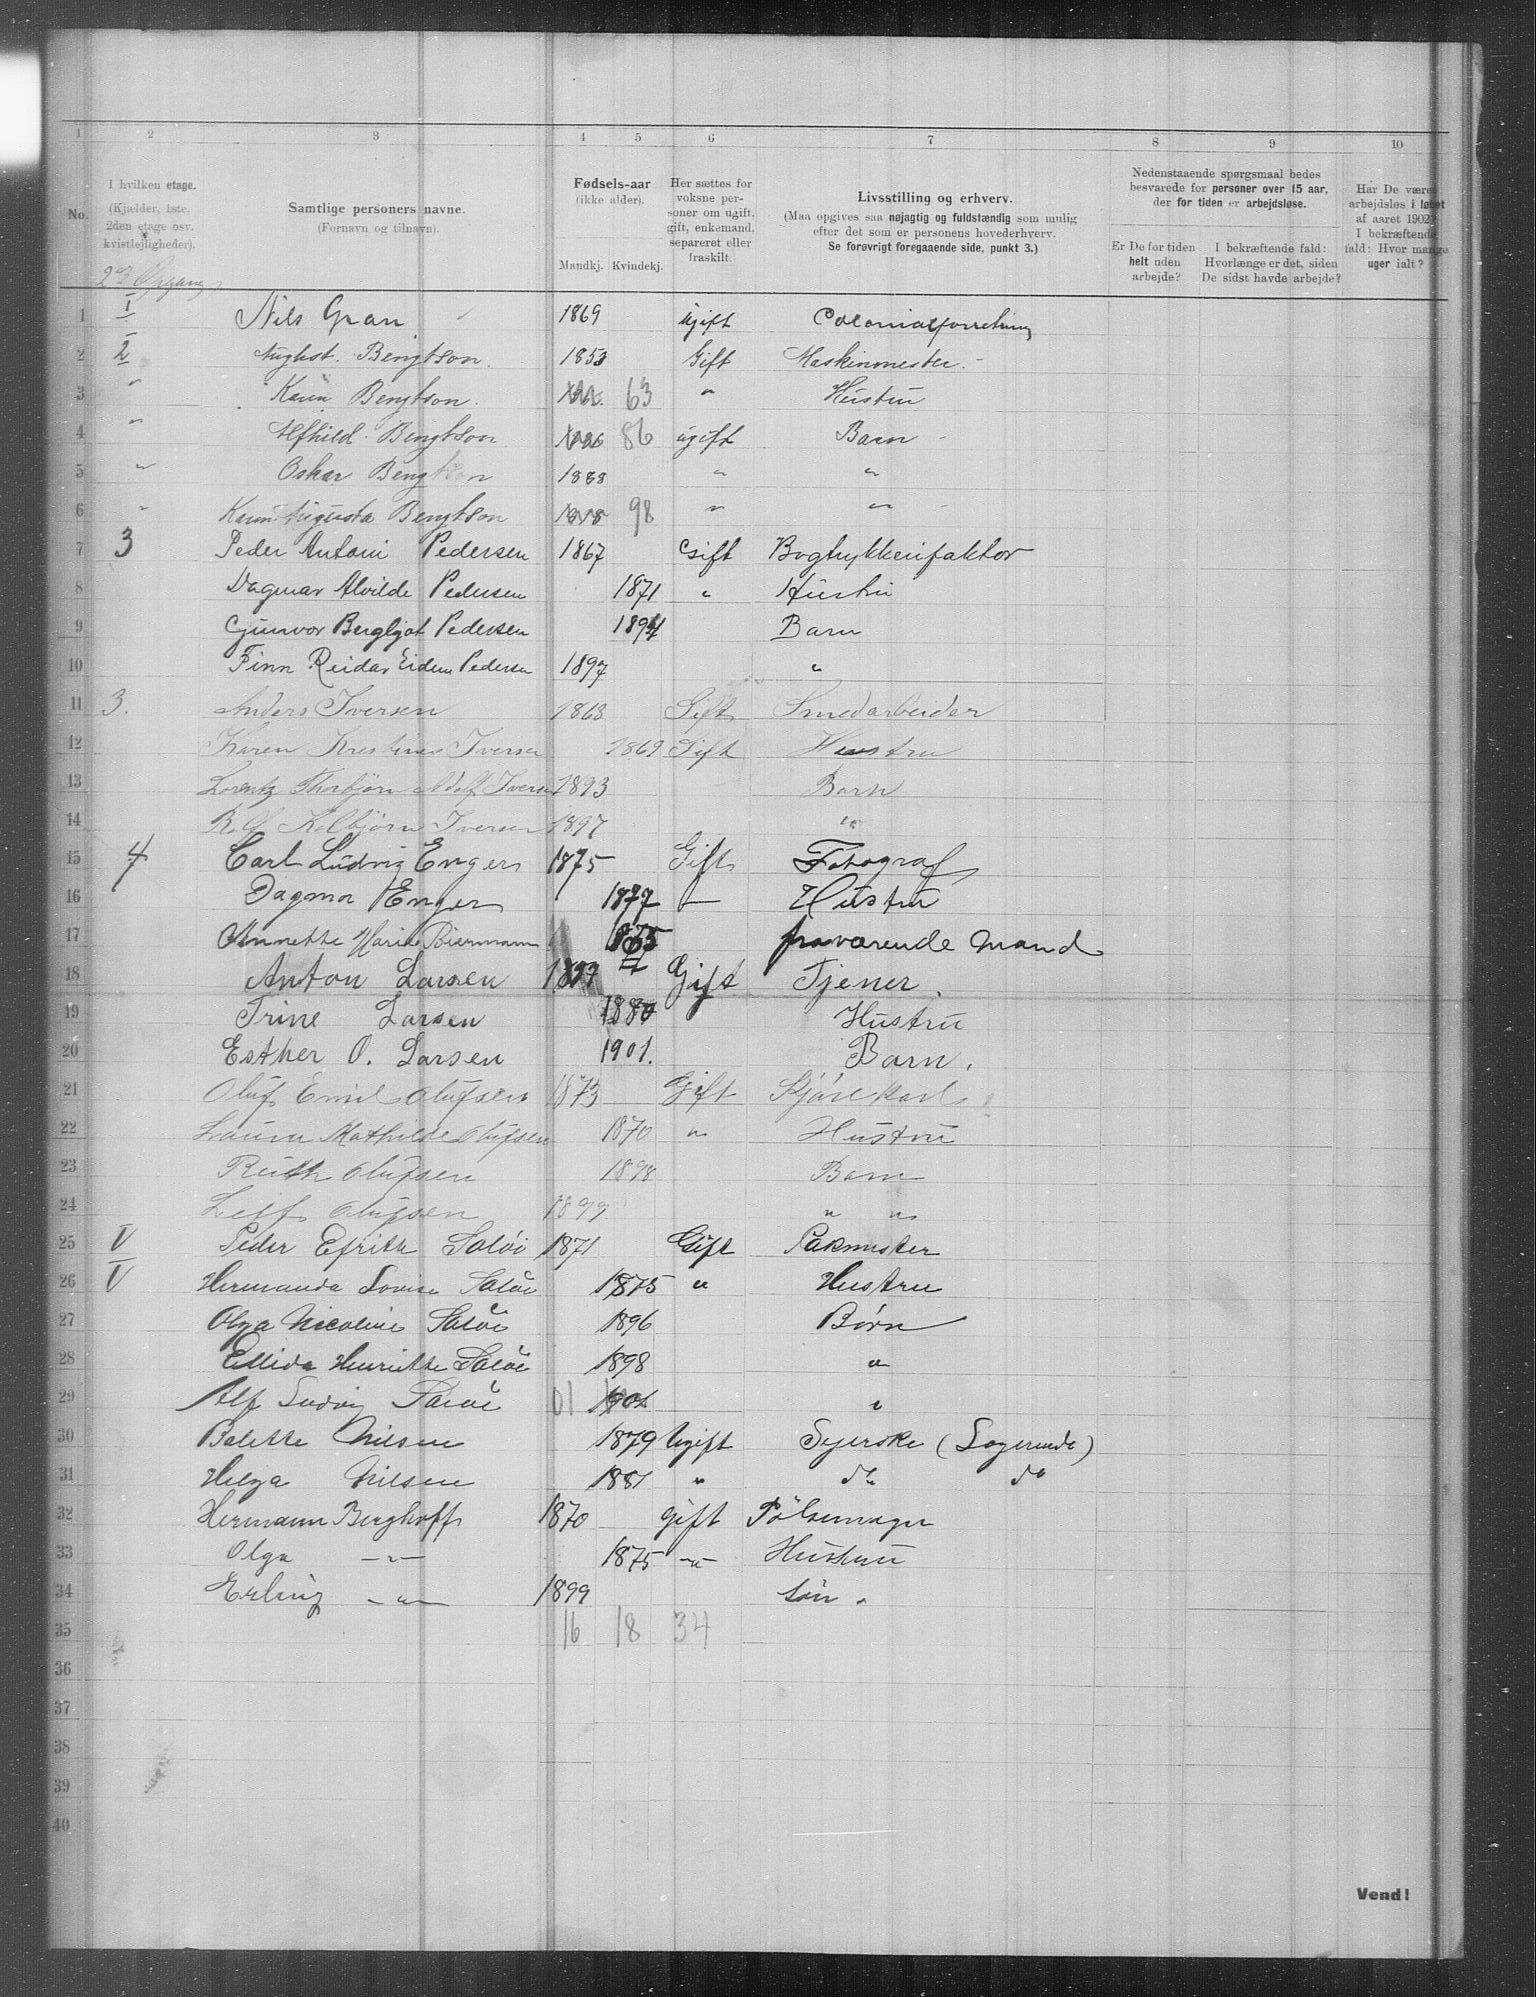 1 2 3 4 5 6 7 8 9 10
No.
I hvilken etage.
(Kjælder, 1ste, 2den etage osv. kvistlejligheder).
Samtlige personers navne.
(Fornavn og tilnavn).
Fødsels-aar
(ikke alder).
Mandkj. Kvindekj.
Her sættes for voksne personer om ugift, gift, enkemand, separeret eller fraskilt.
Livsstilling og erhverv.
(Maa opgives saa nøjagtig og fuldstændig som mulig efter det som er personens hovederhverv.
Se forøvrigt foregaaende side, punkt 3.)
Nedenstaaende spørgsmaal bedes besvarede for personer over 15 aar, der for tiden er arbejdsløse.
Er De for tiden helt uden arbejde?
I bekræftende fald: Hvorlænge er det, siden De sidst havde arbejde?
Har De været arbejdsløs i løbet af aaret 1902? I bekræftende fald: Hvor mange uger ialt?
2den Opgang
1 1 Nils Gran 1869 Ugift Colonialforretning
2 2 August Bengtson 1853 Gift Maskinmester
3 " Karin Bengtson 63 " Hustru
4 " Alfhild Bengtson 86 ugift Barn
5 " Oskar Bengtson 1888 " "
6 " Karin Augusta Bengtson 98 " "
7 3 Peder Antoni Pedersen 1867 Gift Bogtrykkerifaktor
8 Dagmar Alvilde Pedersen 1871 " Hustru
9 Gunvor Bergljot Pedersen 1894 Barn
10 Finn Reidar Eidem Pedersen 1897 "
11 3. Anders Iversen 1863 Gift Smedarbeider
12 Karen Kristine Iversen 1869 Gift Hustru
13 Lorentz Thorbjørn Adolf Iversen 1893 Barn
14 Rolf Kolbjørn Iversen 1897 "
15 4 Carl Ludvig Engers 1875 Gift Fotograf
16 Dagmar Engers 1877 — Hustru
17 Annette Marie Biermann 1875 fraværende Mand
18 Anton Larsen 1877 Gift Tjener.
19 Trine Larsen 1880 Hustru
20 Esther O. Larsen 1901. Barn.
21 Oluf Emil Olufsen 1873 Gift Kjørekarl
22 Laura Mathilde Olufsen 1870 " Hustru
23 Ruth Olufsen 1898 Barn
24 Leif Olufsen 1899 " "
25 V Peder Efrith Saløi 1871 Gift Pakmester
26 V Hermanda Lovise Saløi 1875 " Hustru
27 Olga Nicoline Saløi 1896 Børn
28 Ellida Henriette Saløi 1898 "
29 Alf Ludvig Saløi 01 1901 "
30 Balette Nilsen 1879 Ugift Syerske (Logerende)
31 Helga Nilsen 1881 " do do
32 Hermann Berghoff 1870 gift Pölsemager
33 Olga —"— 1875 —"— Hustru
34 Erling —"— 1899 Sön.
35 16 18 34
36
37
38
39
40
Vend!